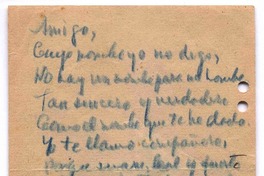 Amigo,
Cuyo nombre yo no digo,
No hay un nombre para un hombre
Tan sincero y verdadero
Como el nombre que te he dado.
Y te llamo compañero,